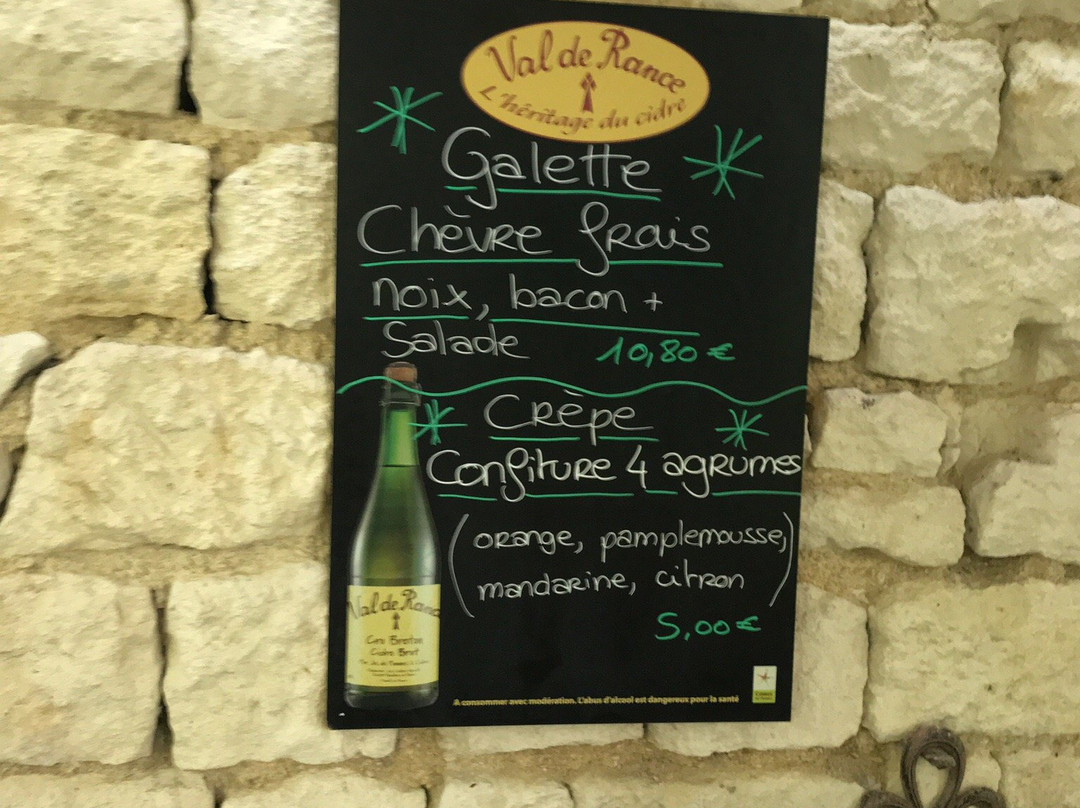 Val de Rance
L'héritage du cidre
Galette
Chèvre frais
noix, bacon +
Salade 10,80 €
Crêpe
Confiture 4 agrumes
(orange, pamplemousse,
mandarine, citron)
5,00 €
Val de Rance
Cru Breton
Cidre Brut
A consommer avec modération. L'abus d'alcool est dangereux pour la santé